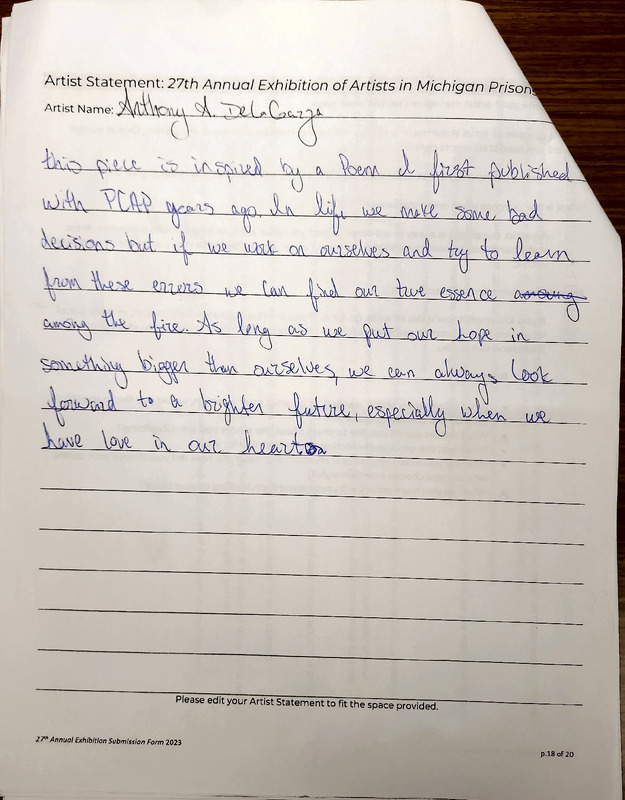 Artist Statement: 27th Annual Exhibition of Artists in Michigan Prisons
Artist Name: Anthony A. DeLaGarza
this piece is inspired by a Poem I first published
with PCAP years ago. In life we make some bad
decisions but if we work on ourselves and try to learn
from these errors we can find our true essence
among the fire. As long as we put our hope in
something bigger than ourselves, we can always look
forward to a brighter future, especially when we
have love in our heart
Please edit your Artist Statement to fit the space provided.
27th Annual Exhibition Submission Form 2023
p.18 of 20